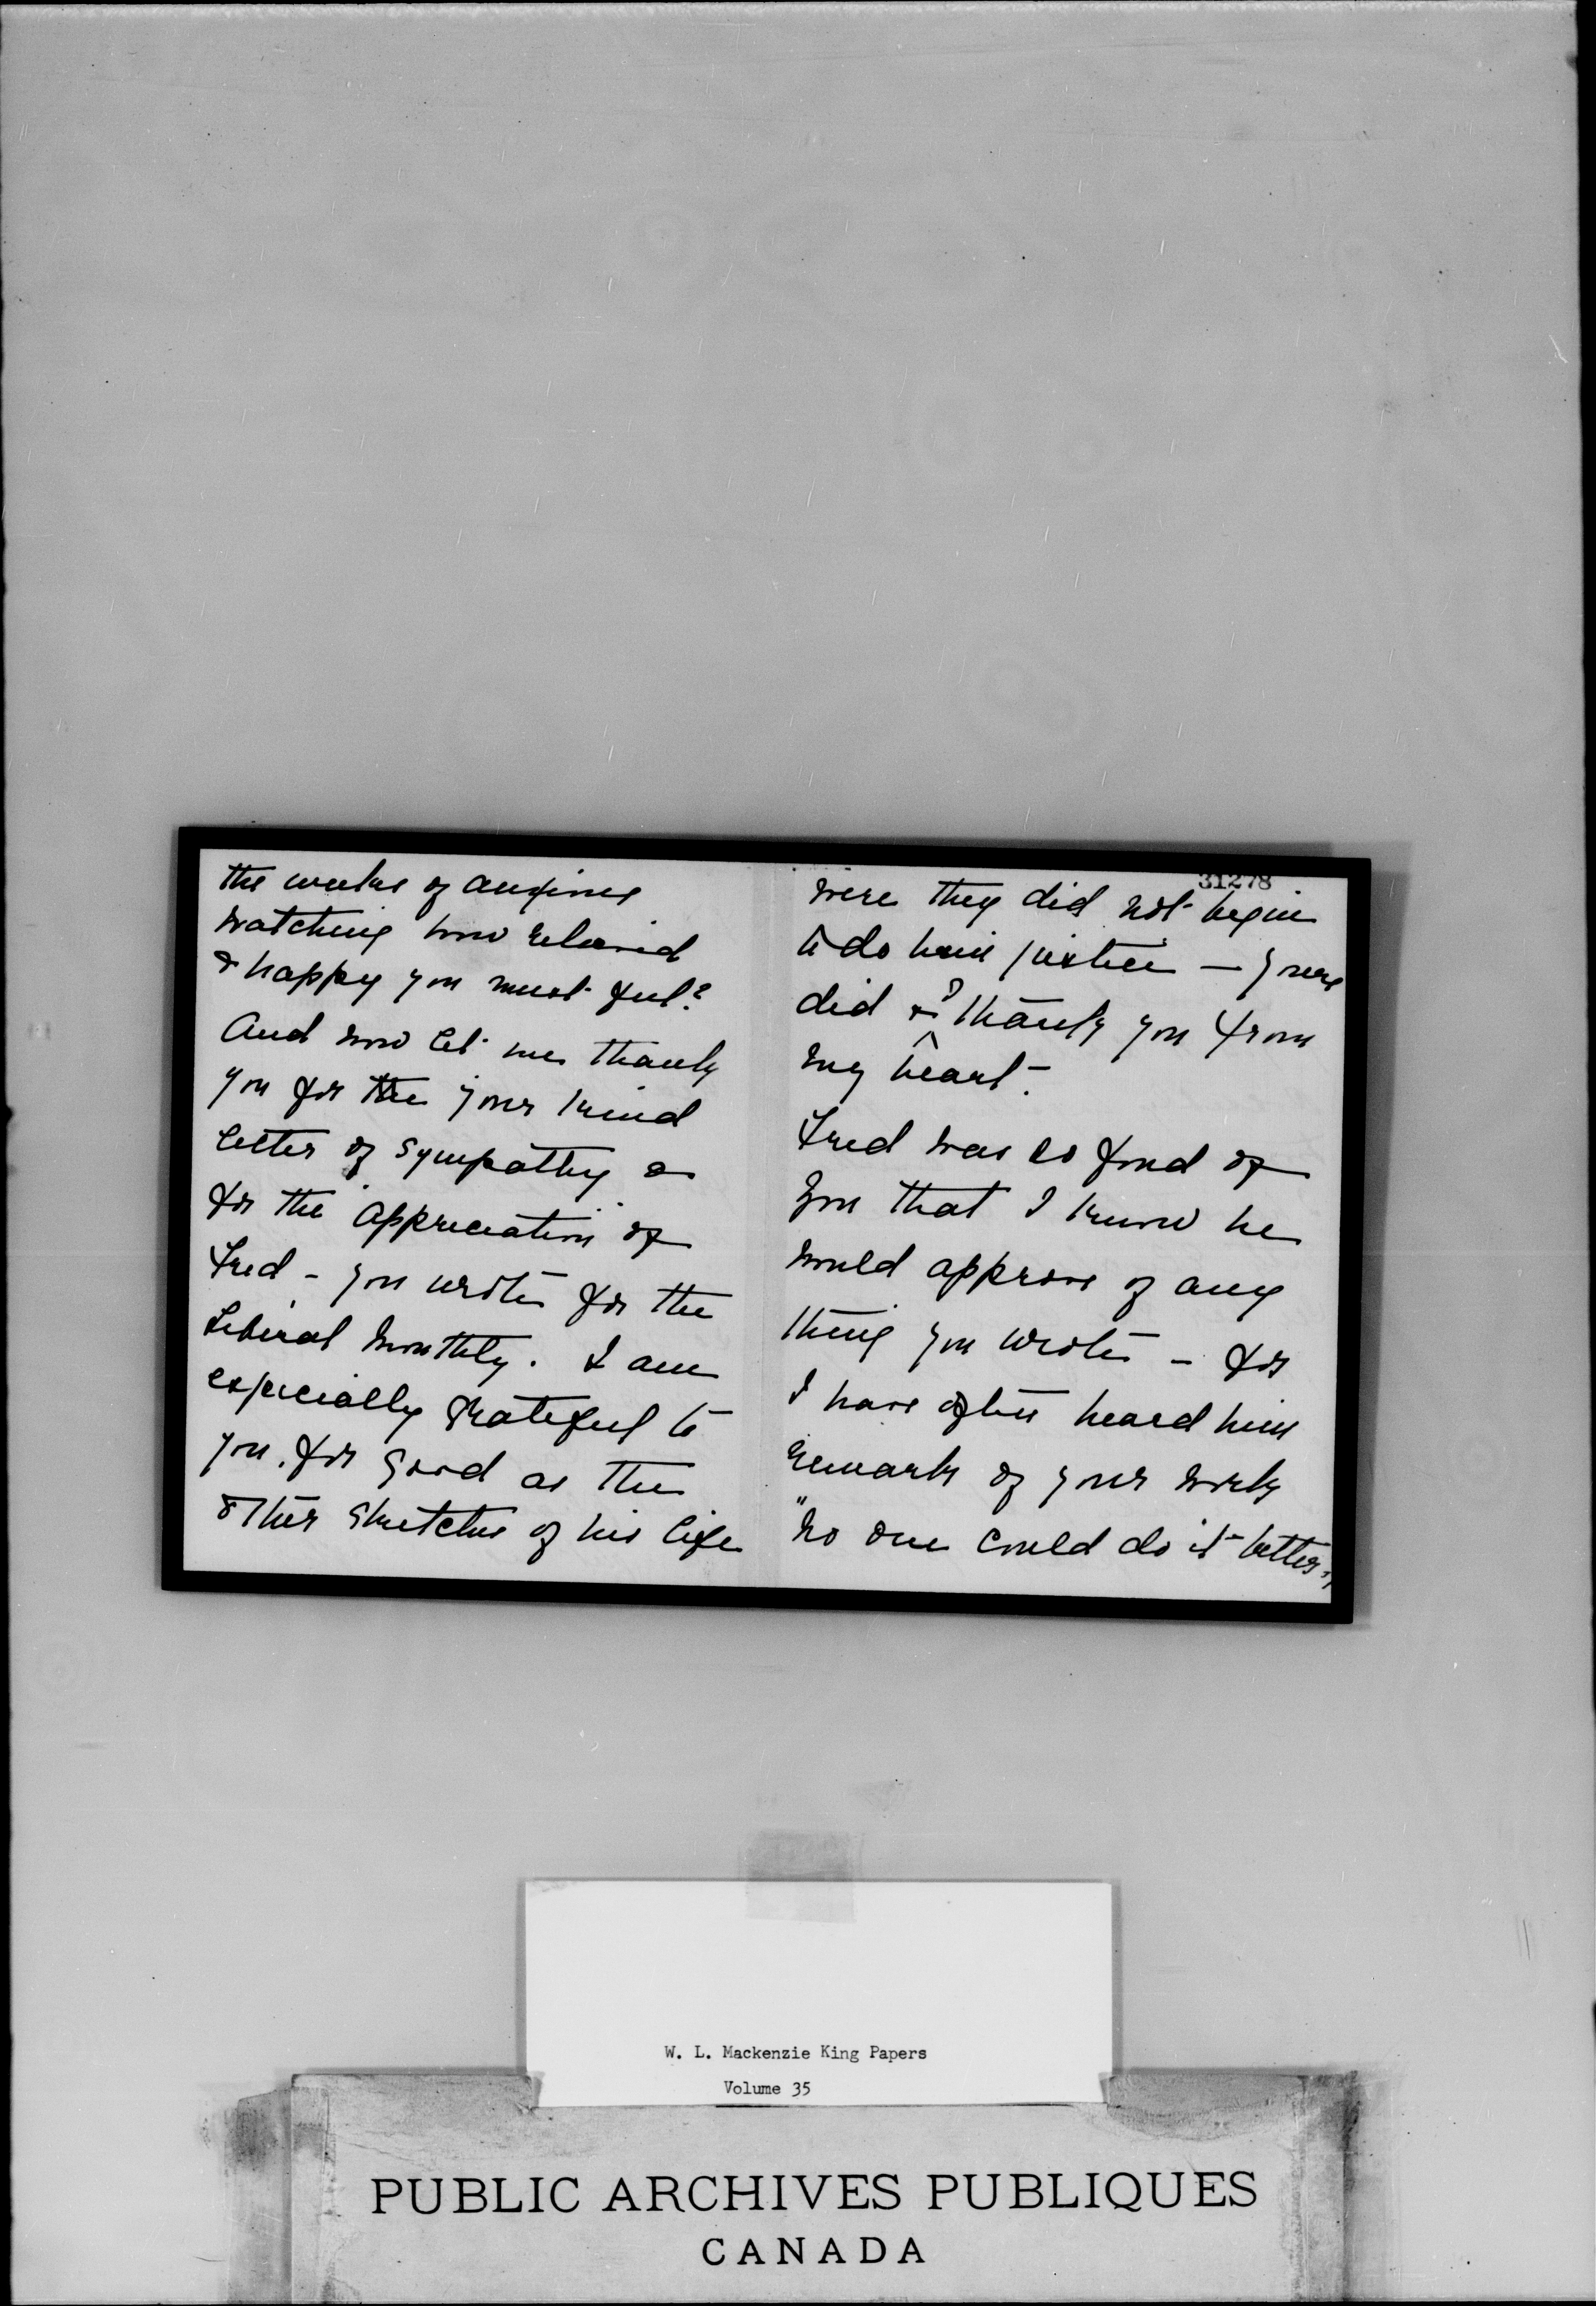 the weeks of anxious
watching how relieved
& happy you must feel?
And now let me thank
you for the your kind
letter of sympathy &
for the "appreciation" of
Fred - you wrote for the
Liberal Monthly. I am
especially grateful to
you. for good as the
other sketches of his life
31278
were they did not begin
to do him justice — yours
did & I thank you from
my heart -.
Fred was so fond of
you that I know he
would approve of any
thing you wrote - for
I have often heard him
remark of your work
"no one could do it better,"
W. L. Mackenzie King Papers
Volume 35
PUBLIC ARCHIVES PUBLIQUES
CANADA